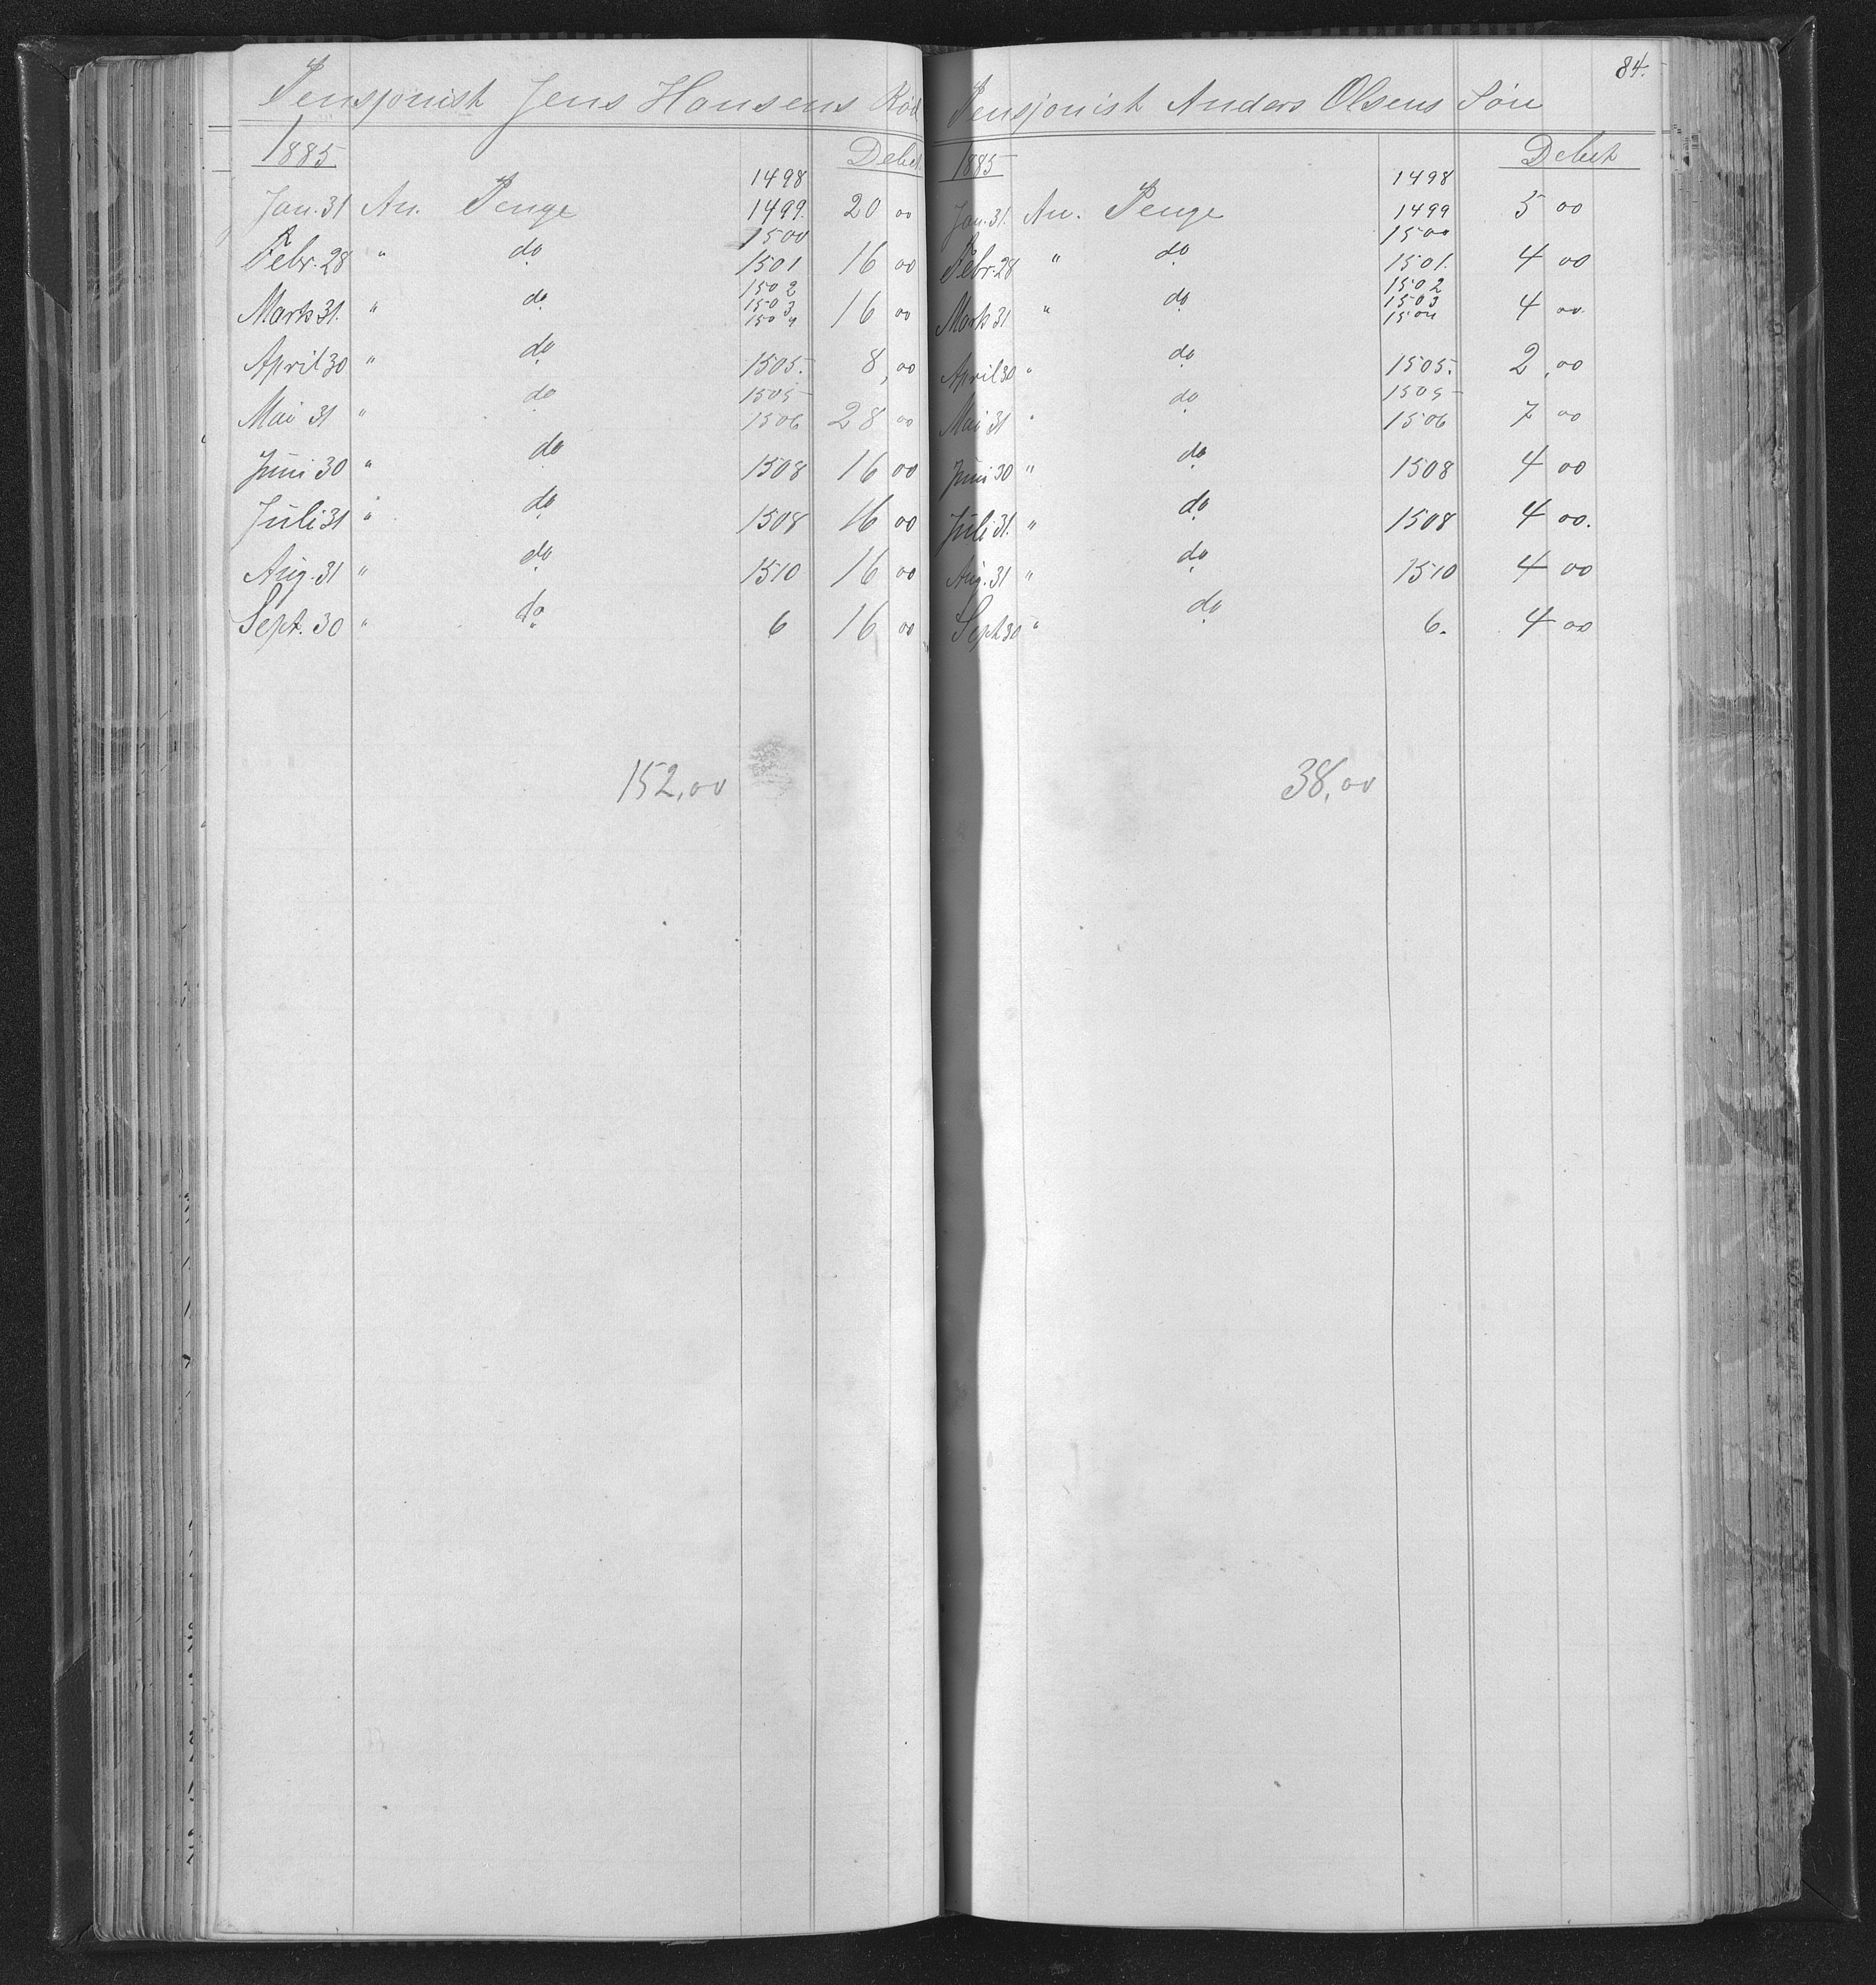 Pensjonist Jens Hansens Rød
1885 Debet
1498
Jan. 31 An. Penge 1499. 20 00
1500
Febr. 28 " do 1501 16 00
1502
Marts 31. " do 1503 16 00
1504
April 30 " do 1505. 8,00
1505
Mai 31 " do 1506 28 00
Juni 30 " do 1508 16 00
Juli 31 " do 1508 16 00
Aug. 31 " do 1510 16 00
Sept. 30 " do 6 16 00
152,00
84.
Pensjonist Anders Olsens Søn
1885 Debet
1498
Jan. 31. An. Penge 1499 5 00
1500
Febr. 28 " do 1501. 4 00
1502
Marts 31 " do 1503 4 00.
1504
April 30 " do 1505. 2,00
1505
Mai 31 " do 1506 7 00
Juni 30 " do 1508 4 00
Juli 31. " do 1508 4 00.
Aug. 31 " do 1510 4 00
Sept 30 " do 6. 4 00
38,00